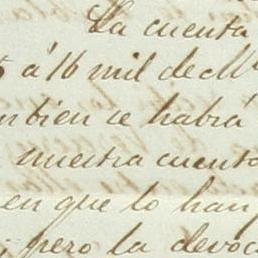 La cuenta
5 á 16 mil de M
mbien se habrá
nuestra cuenta
en que lo han
; pero la devoc